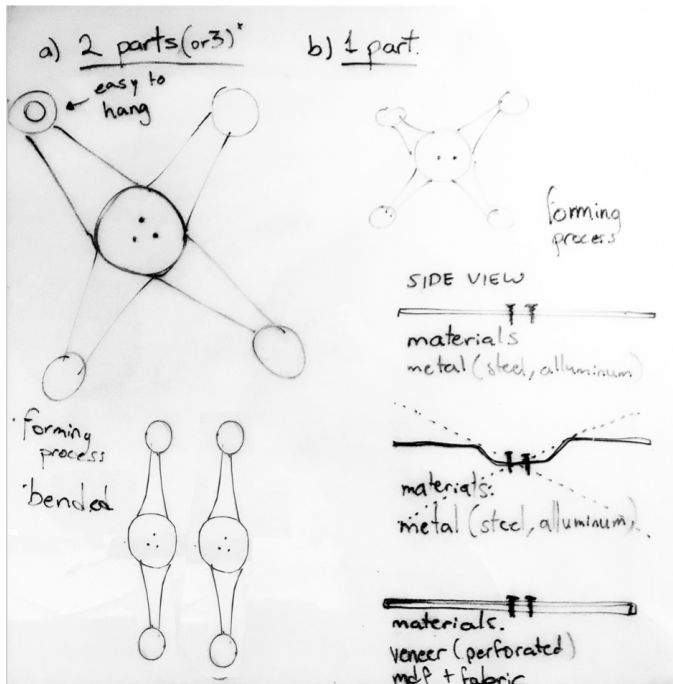 a) 2 parts (or 3)*
easy to
hang
forming
process
bended
b) 1 part.
forming
process
SIDE VIEW
materials
metal (steel, alluminum)
materials.
metal (steel, alluminum)
materials.
veneer (perforated)
mdf + fabric